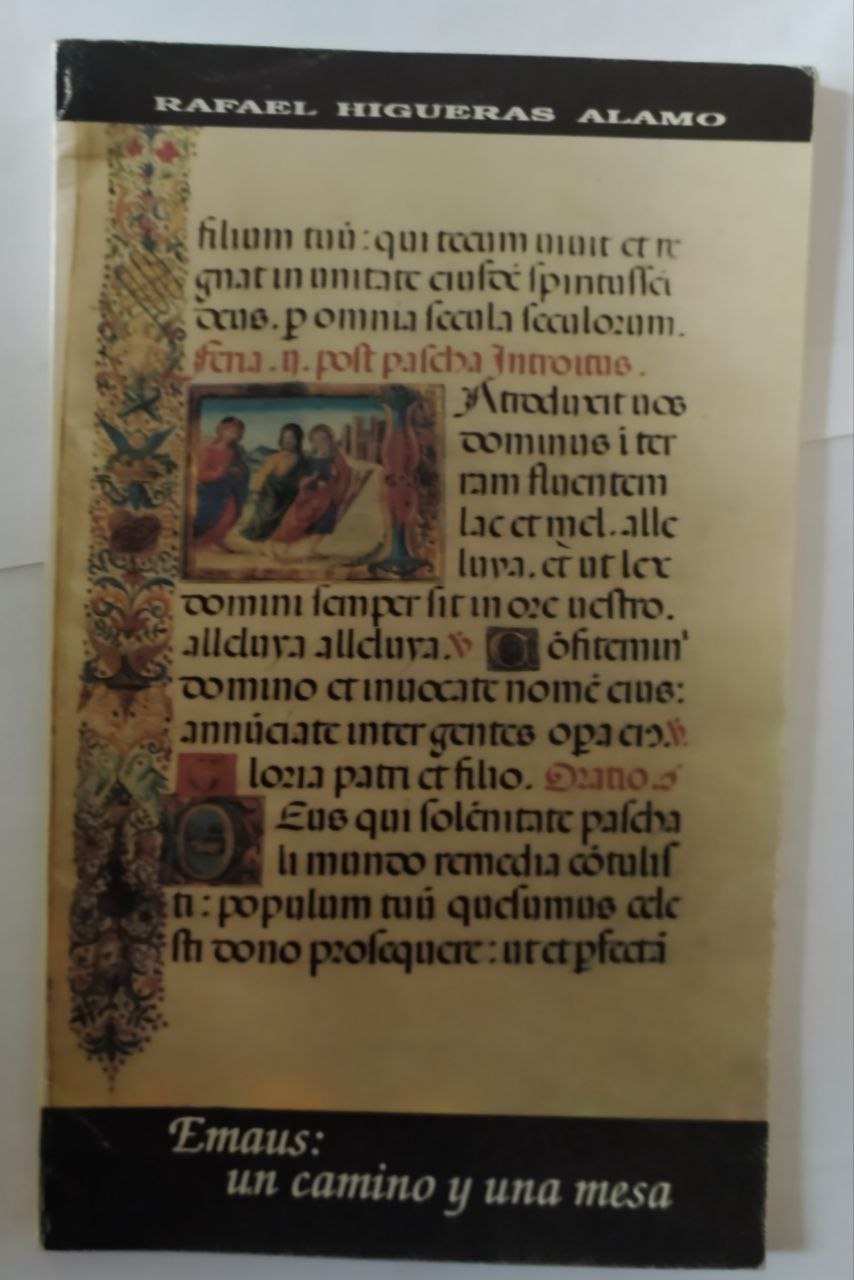 RAFAEL HIGUERAS ALAMO
filium tuū: qui tecum uiuit et re
gnat in unitate eiusdē spiritussci
deus. p omnia secula seculorum.
Feria .ij. post pascha Introitus.
Introduxit uos
dominus i ter
ram fluentem
lac et mel. alle
luya. et ut lex
domini semper sit in ore uestro.
alleluya alleluya. V Cōfitemin'
domino et inuocate nomē eius:
annūciate inter gentes opa eiꝰ. V.
Gloria patri et filio. Oratio.
Deus qui solēnitate pascha
li mundo remedia cōtulis
ti: populum tuū quesumus cele
sti dono prosequere: ut et pfectā
Emaus:
un camino y una mesa